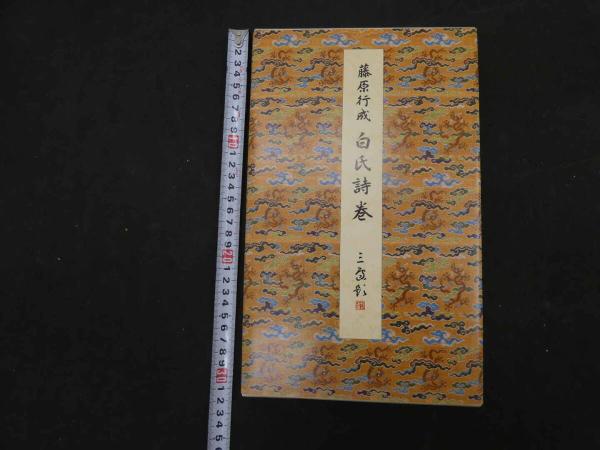 藤原行成 白氏詩巻
2
3
4
5
6
7
8
9
10
1
2
3
4
5
6
7
8
9
20
1
2
3
4
5
6
7
8
9
30
1
2
3
4
5